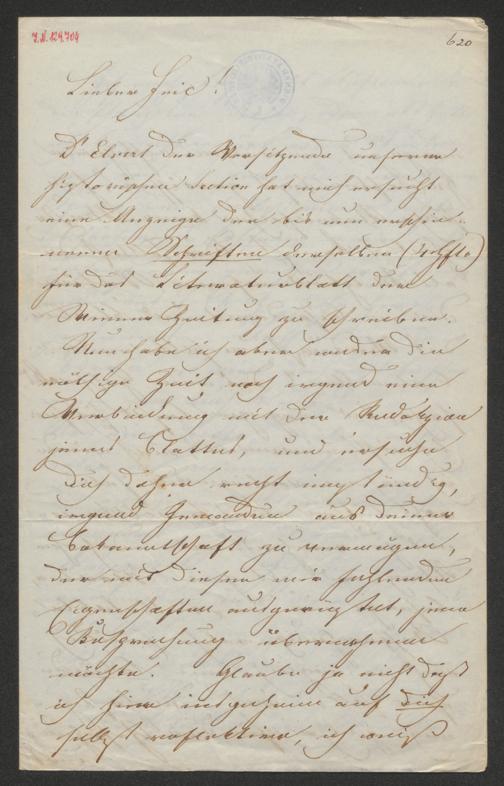 I.N. 129.704
620
Lieber Freund!
Dr Elvert der Vorsitzende unserer
historischen Section hat mich ersucht
eine Anzeige der bis nun erschie-
nenen Schriften derselben (Hefte)
für das Literaturblatt der
Wiener Zeitung zu schreiben.
Nun habe ich aber weder die
nöthige Zeit noch irgend eine
Verbindung mit der Redakzion
jenes Blattes, und ersuche
Dich daher recht inständig,
irgend Jemanden aus Deiner
Bekanntschaft zu vermögen,
der mit diesen mir fehlenden
Eigenschaften ausgerüstet, jene
Besprechung übernehmen
möchte. Glaube ja nicht daß
ich hier insgeheim auf Dich
selbst reflektire, ich weiß